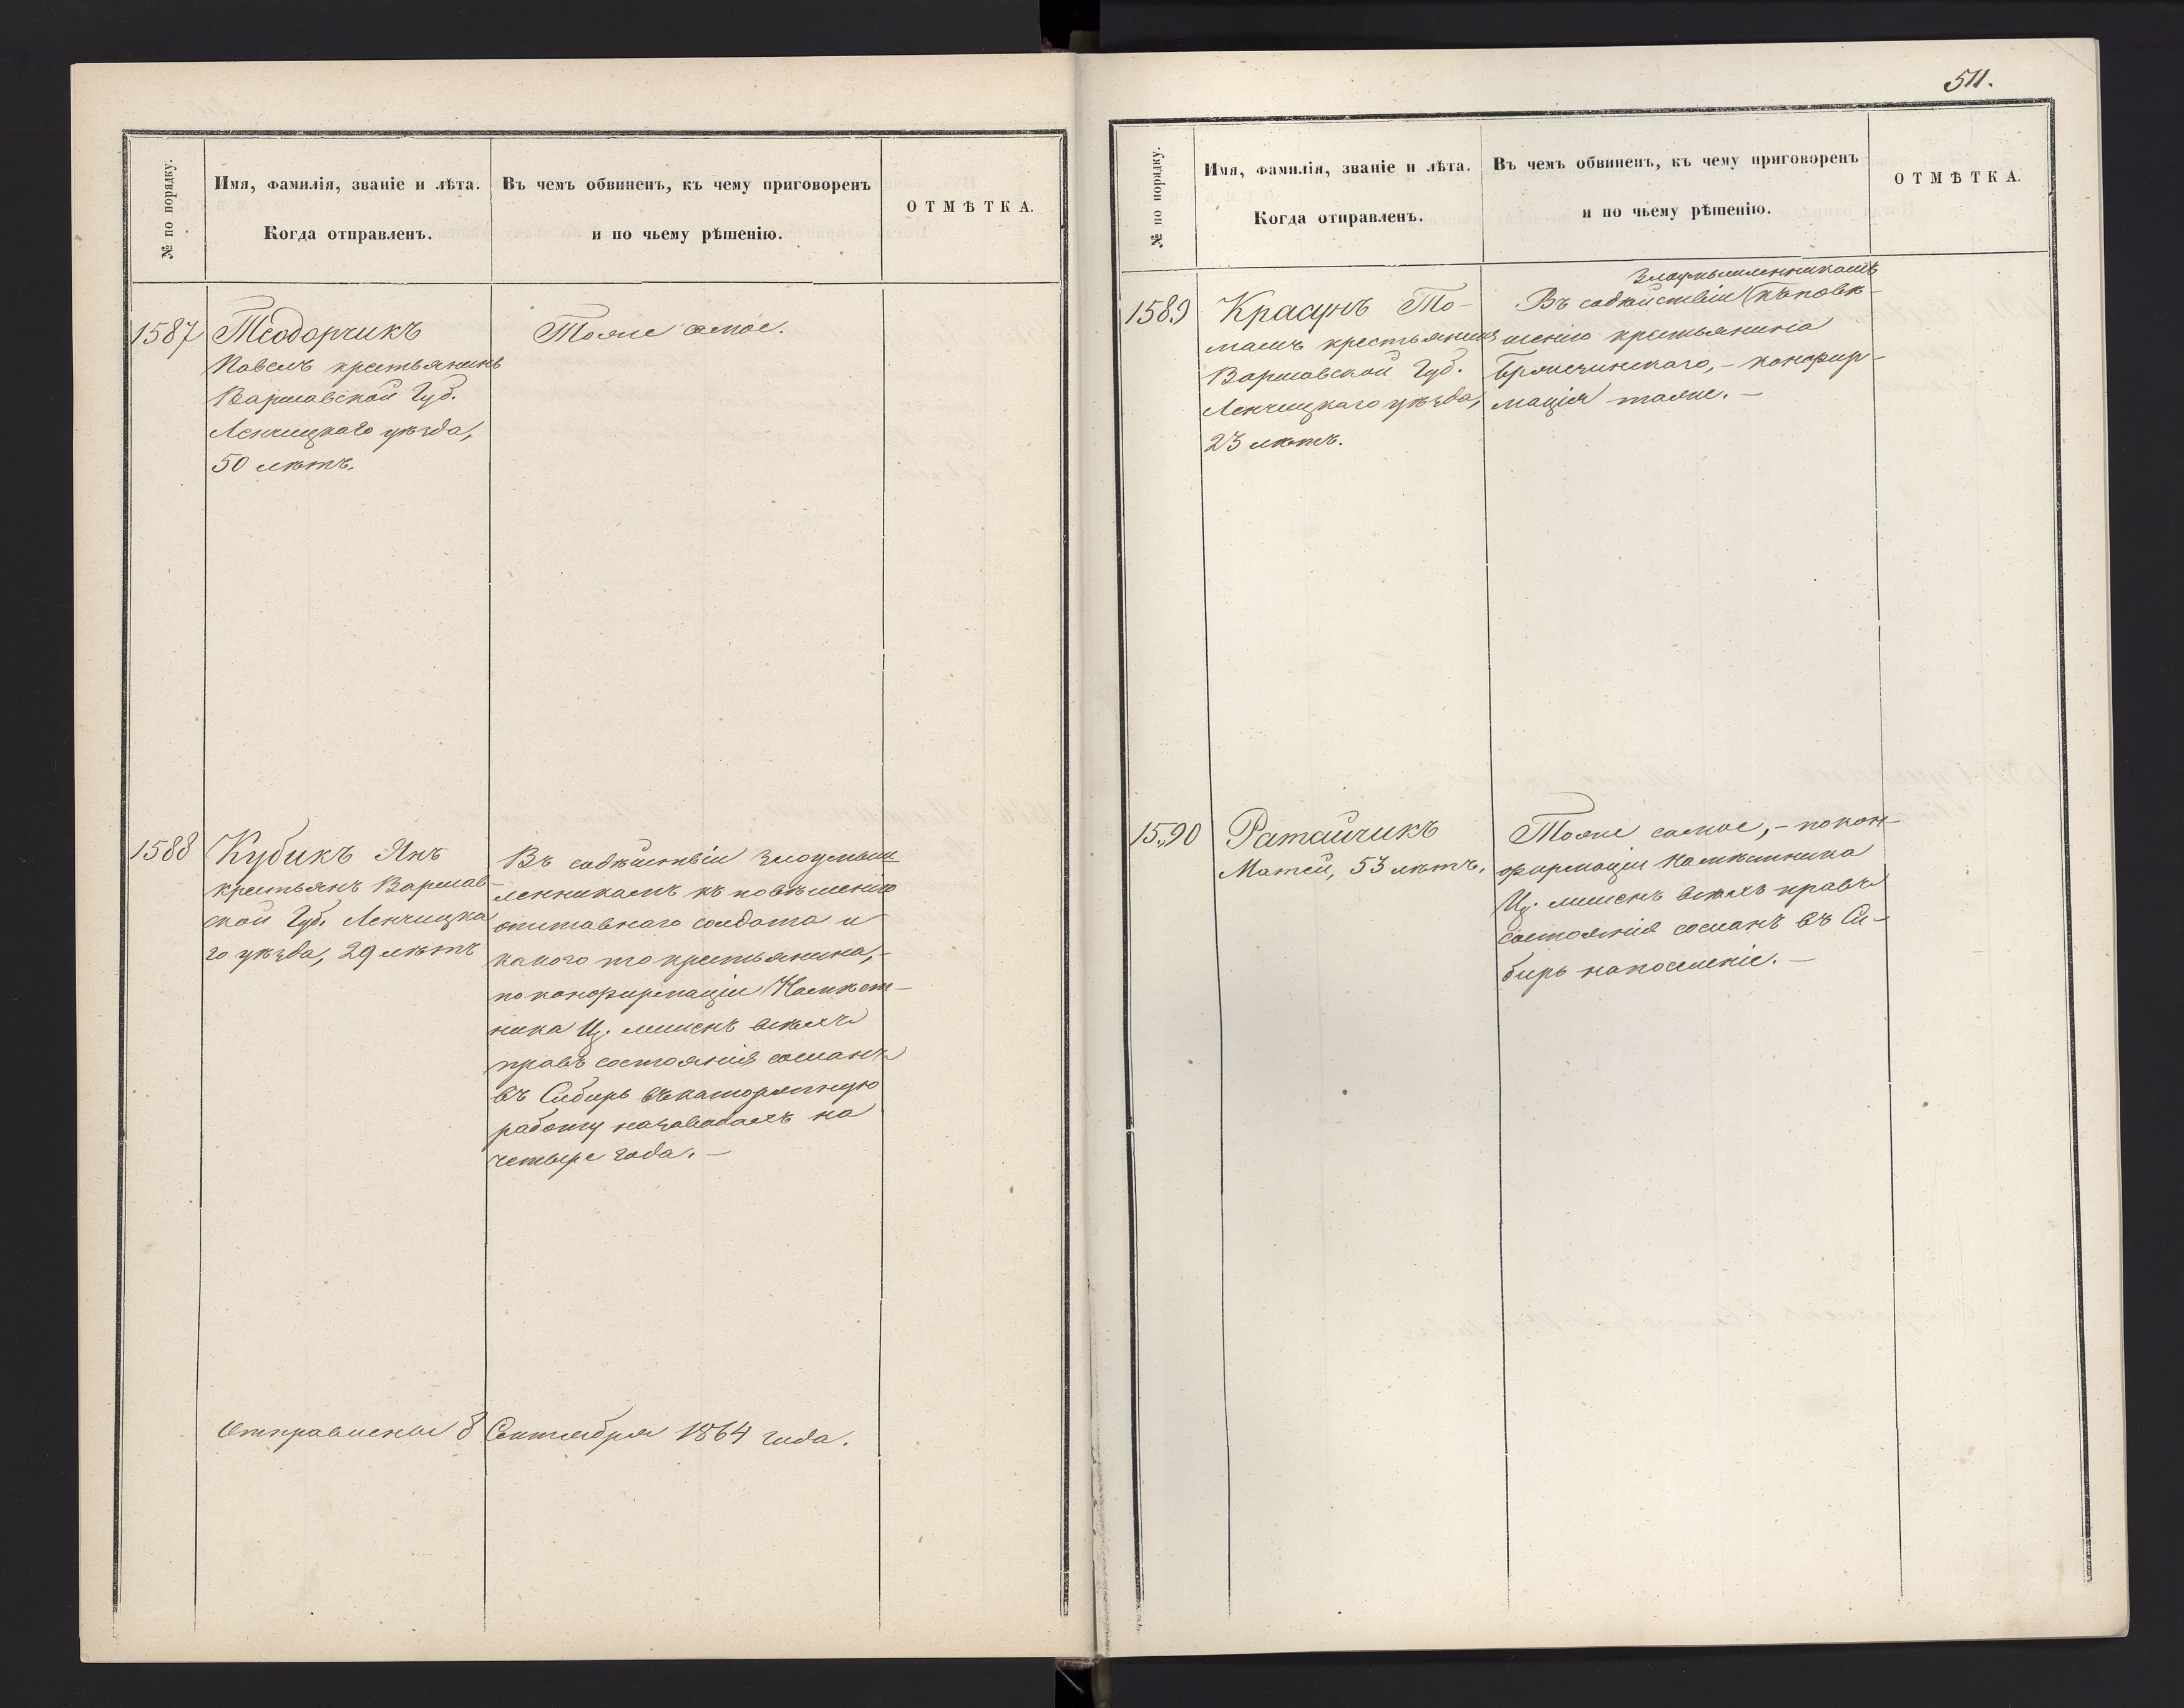 № по порядку.
Имя, фамилія, званіе и лѣта.
Когда отправленъ.
Въ чемъ обвиненъ, къ чему приговоренъ
и по чьему рѣшенію.
ОТМѢТКА.
1587
Теодорчикъ
Павелъ крестьянинъ
Варшавской Губ.
Ленчицкаго уѣзда,
50 лѣтъ.
Тоже самое.
1588
Кубикъ Янъ
крестьянъ Варшав-
ской Губ. Ленчицка
го уѣзда, 29 лѣтъ
Въ содѣйствіи злоумыш
ленникамъ къ повѣшенію
отставнаго солдата и
какого то крестьянина,-
по конфирмаціи Намѣст-
ника Ц. лишенъ всѣхъ
правъ состоянія сосланъ
въ Сибирь въ каторжную
работу на заводахъ на
четыре года. —
Отправлены 8 Сентября 1864 года.
511.
№ по порядку.
Имя, фамилія, званіе и лѣта.
Когда отправленъ.
Въ чемъ обвиненъ, къ чему приговоренъ
и по чьему рѣшенію.
ОТМѢТКА.
1589
Красунъ То-
машъ крестьянинъ
Варшавской Губ.
Ленчицкаго уѣзда,
23 лѣтъ.
злоумышленникамъ
Въ содѣйствіи къ повѣ-
шенію крестьянина
Бржечинскаго, - конфир-
мація таже. —
1590
Ратайчикъ
Матей, 53 лѣтъ.
Тоже самое, - по кон-
фирмаціи Намѣстника
Ц. лишенъ всѣхъ правъ
состоянія сосланъ въ Си-
бирь на поселеніе. —